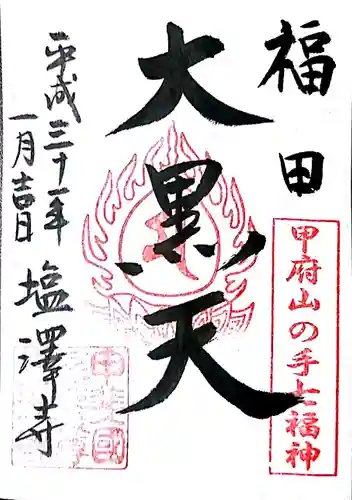 福田
大黒天
甲府山の手七福神
平成三十一年
一月吉日
塩澤寺